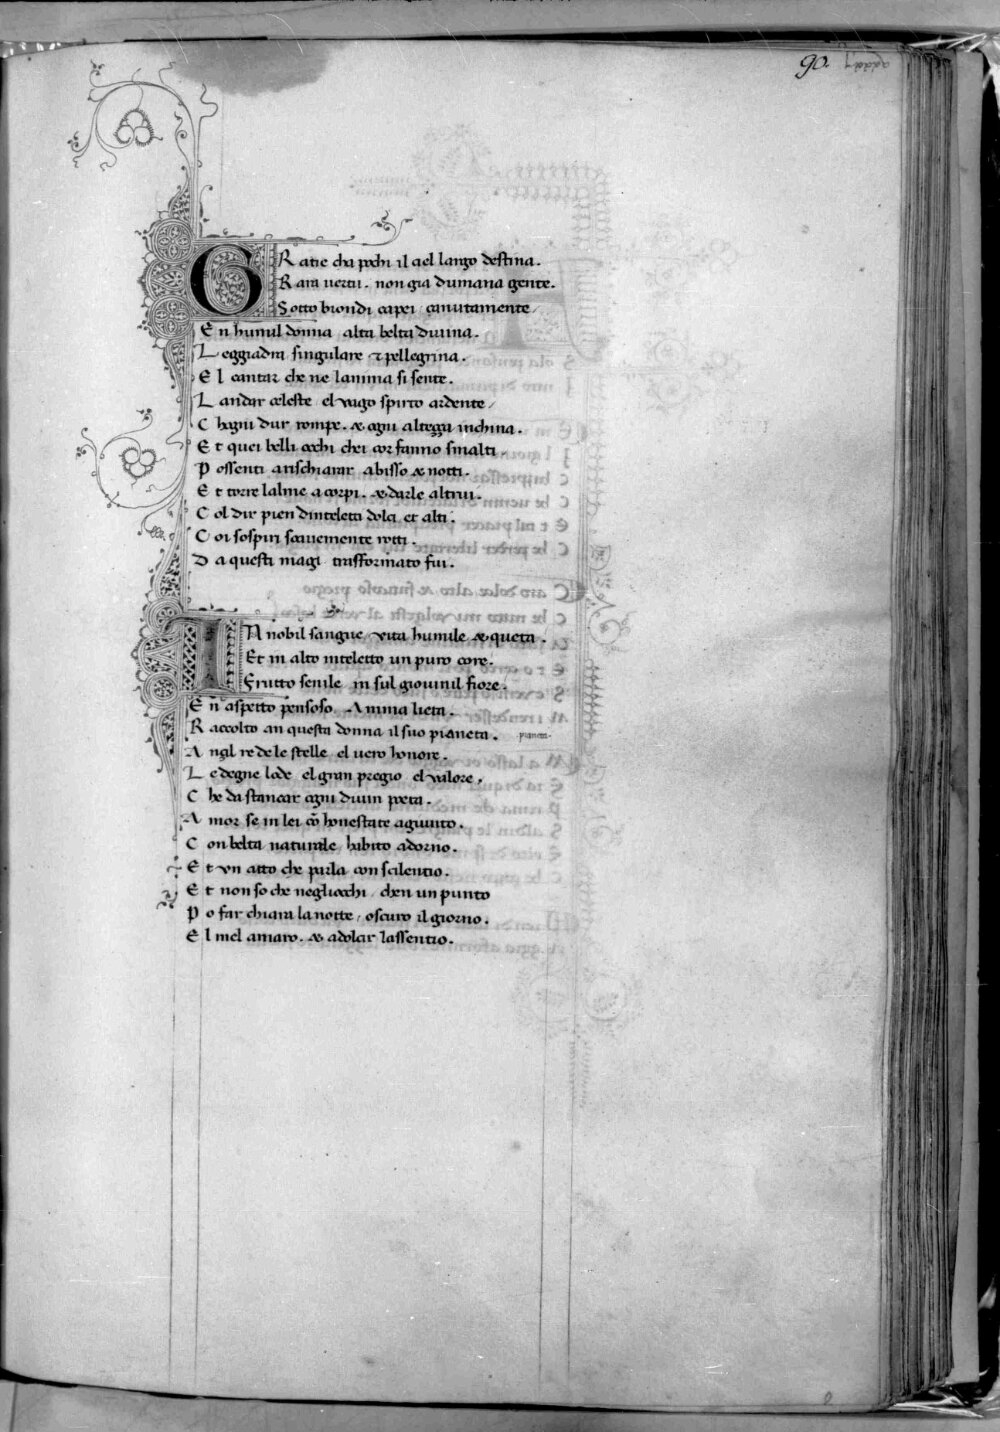 90
GRatie cha pochi il ciel largo destina.
Rara uertu. non gia dumana gente.
Sotto biondi capei canutamente
En humil donna alta belta diuina.
Leggiadria singulare et pellegrina.
El cantar che ne lanima si sente.
Landar celeste el uago spirto ardente
Chogni dur rompe. et ogni altezza inchina.
Et quei belli occhi chei cor fanno smalti
Possenti arischiarar abisso et notti.
Et torre lalme acorpi. et darle altrui.
Col dir pien dinteletti dolci et alti.
Coi sospiri soauemente rotti.
Da questi magi trasformato fui.
IN nobil sangue uita humile et queta.
Et in alto inteletto un puro core.
Frutto senile in sul giouinil fiore.
En aspetto pensoso Anima lieta.
Raccolto an questa donna il suo pianeta.
pianeta.
Anzil re de le stelle el uero honore.
Le degne lode el gran pregio el ualore.
Che da stancar ogni diuin poeta.
Amor se in lei cō honestate aguiunto.
Con belta naturale habito adorno.
Et un atto che parla con silentio.
Et non so che negliocchi chen un punto
Po far chiara la notte oscuro il giorno.
El mel amaro. et adolcir lassentio.